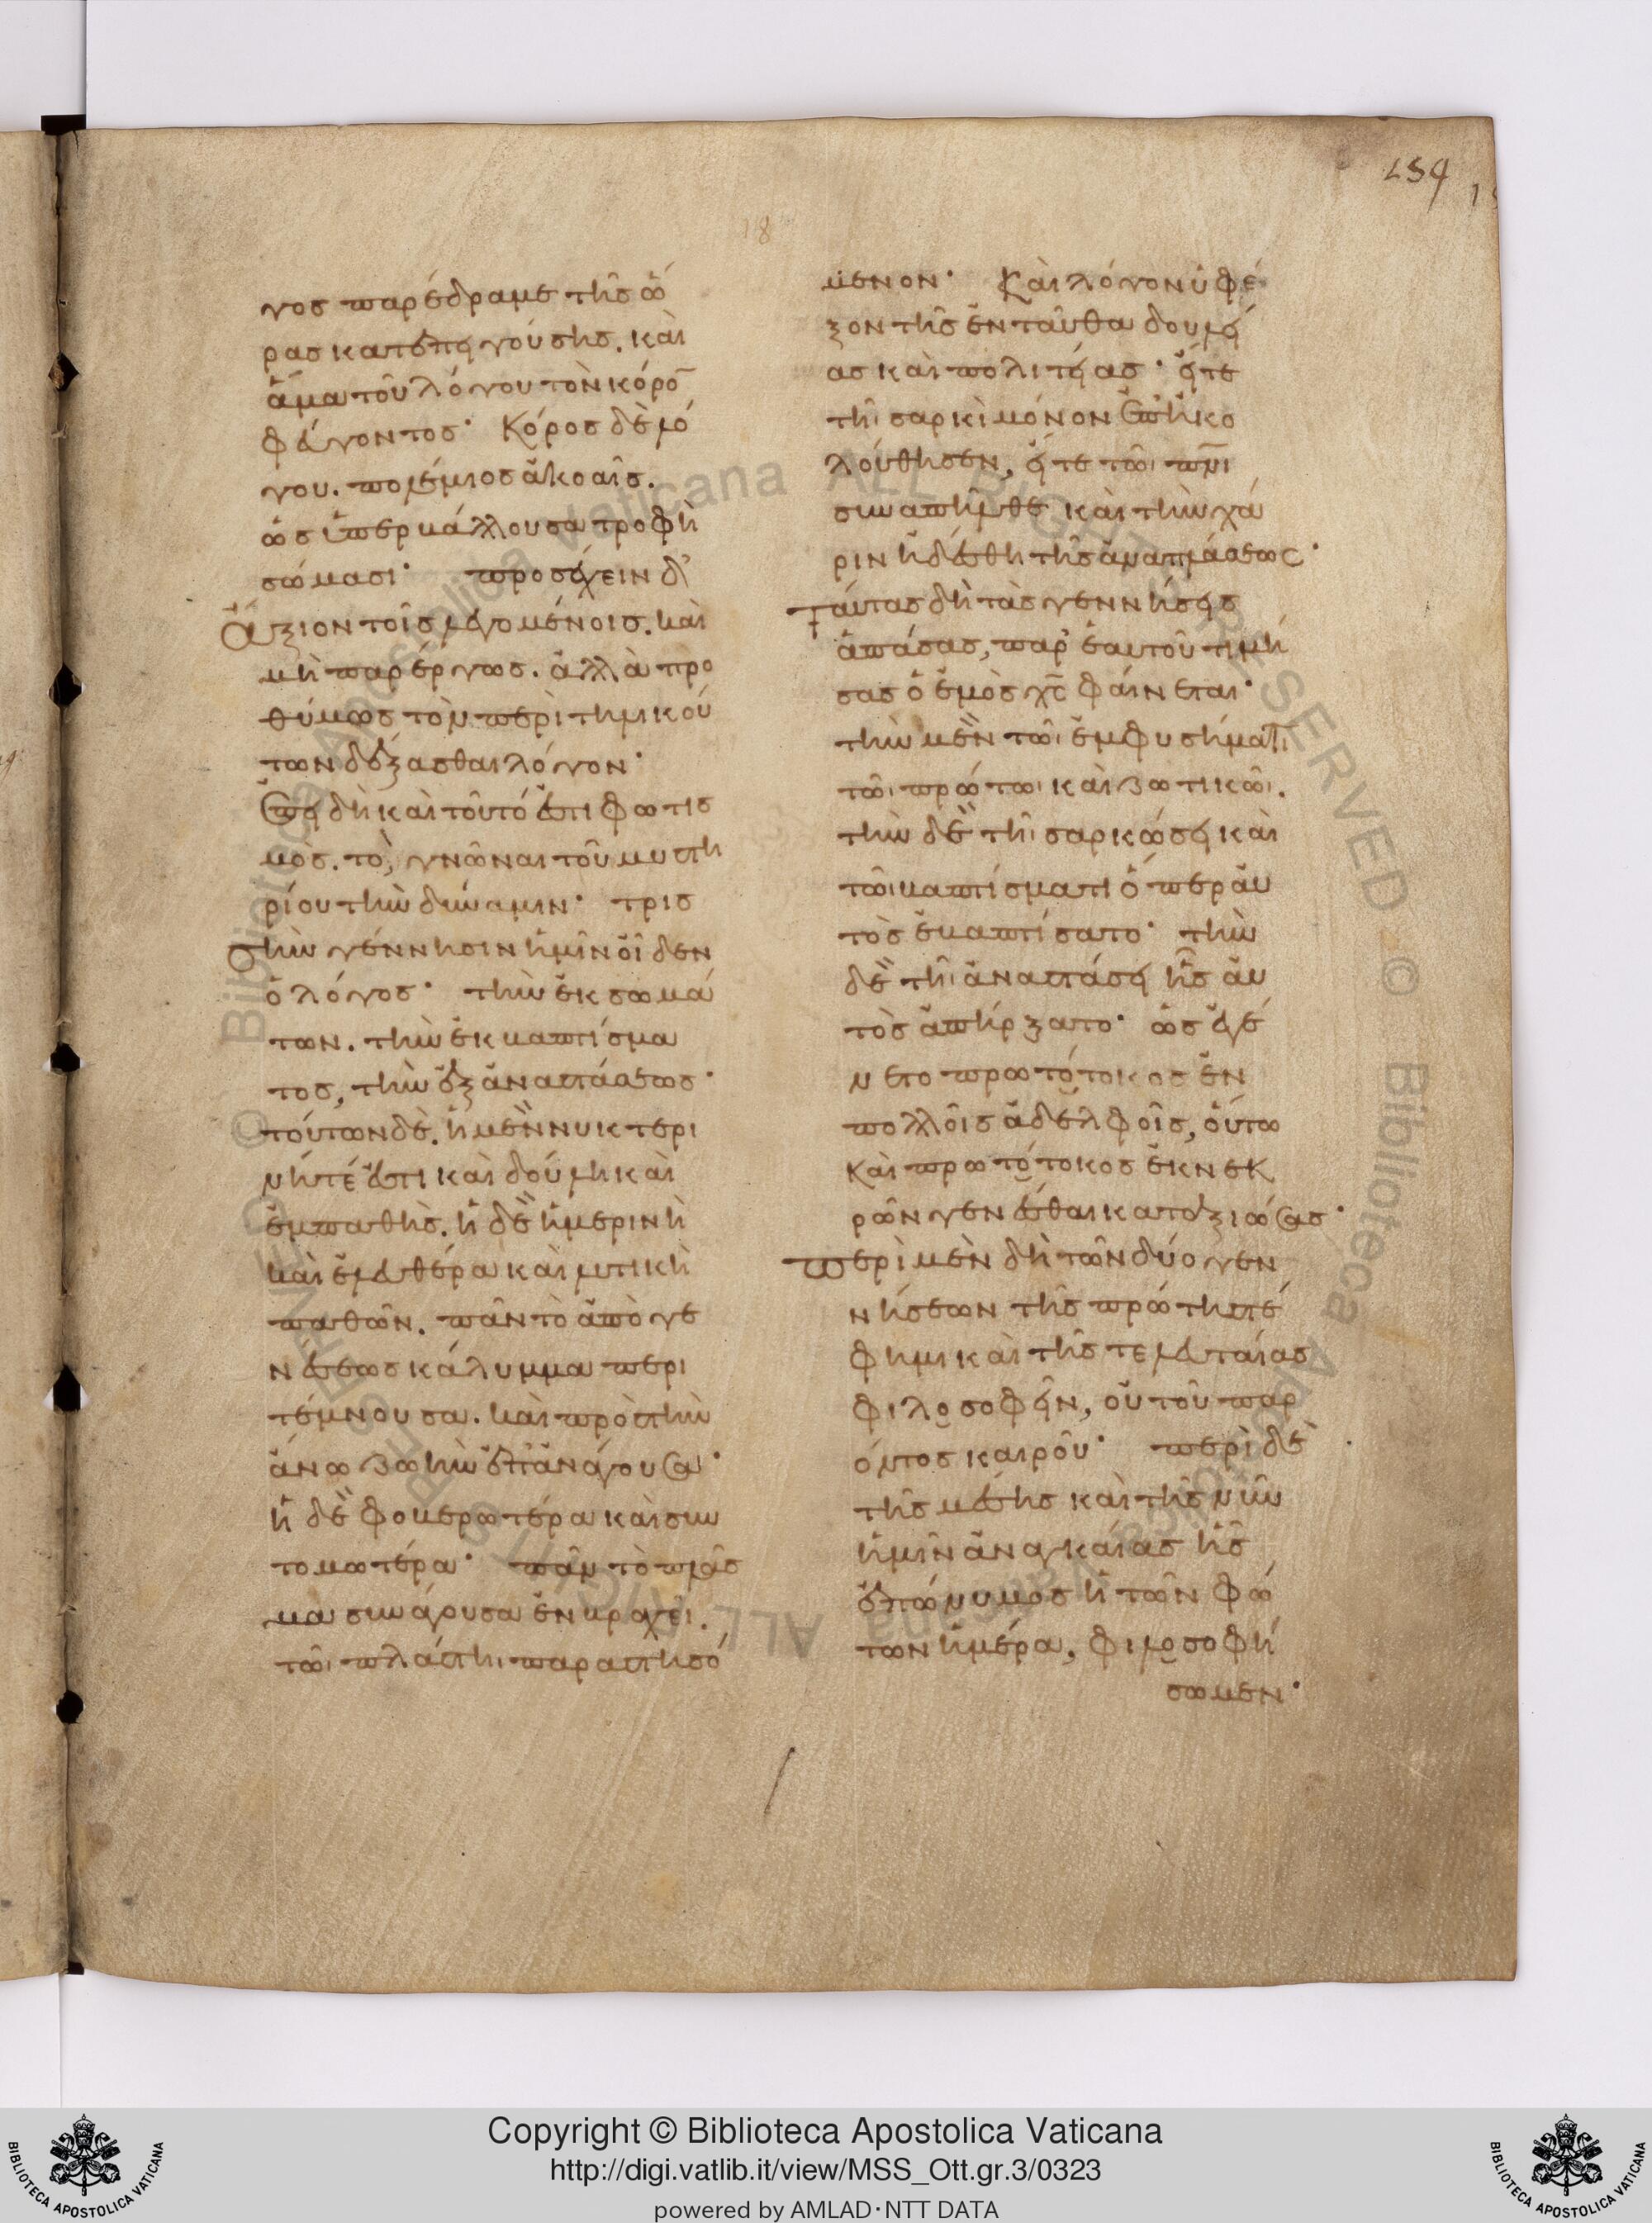 159
18
γος παρέδραμε τῆς ὥ
ρας κατεπειγούσης. καὶ
ἅμα τοῦ λόγου τὸν κόρο̅
φεύγοντος· Κόρος δὲ λό
γου. πολέμιος ἀκοαῖς.
ὡς ὑπερβάλλουσα τροφὴ
σώμασι· προσέχειν δ'
ἄξιον τοῖς λεγομένοις. καὶ
μὴ παρέργως. ἀλλὰ προ
θύμως τὸν περὶ τηλικού
των δέξασθαι λόγον·
ἐπεὶ δὴ καὶ τοῦτό ἐστι φωτισ
μὸς. τὸ, γνῶναι τοῦ μυστη
ρίου τὴν δύναμιν· τρισ
τὴν γέννησιν ἡμῖν οἶδεν
ὁ λόγος· τὴν ἐκ σωμά
των. τὴν ἐκ βαπτίσμα
τος, τὴν ἐξ ἀναστάσεως·
τούτων δὲ. ἡ μὲν νυκτερι
νή τέ ἐστι καὶ δούλη καὶ
ἐμπαθὴς. ἡ δὲ ἡμερινὴ
καὶ ἐλευθέρα καὶ λυτικὴ
παθῶν. πᾶν τὸ ἀπὸ γε
νέσεως κάλυμμα περι
τέμνουσα. καὶ πρὸς τὴν
ἄνω ζωὴν ἐπανάγουσα·
ἡ δὲ φοβερωτέρα καὶ συν
τομωτέρα· πᾶν τὸ πλάσ
μα συνάγουσα ἐν βραχεῖ.
τῶι πλάστηι παραστησό
μενον· Καὶ λόγον ὑφέ
ξον τῆς ἐνταῦθα δουλεί
ας καὶ πολιτείας· εἴτε
τῆι σαρκὶ μόνον ἐπηκο
λούθησεν, εἴτε τῶι πν̅ι
συναπῆλθε καὶ τὴν χά
ριν ἠδέσθη τῆς ἀναπλάσεως·
ταύτας δὴ τὰς γεννήσεις
ἁπάσας, παρ' ἑαυτοῦ τιμή
σας ὁ ἐμὸς χ̅ς̅ φαίνεται·
τὴν μὲν τῶι ἐμφυσήματι
τῶι πρώτωι καὶ ζωτικῶι.
τὴν δὲ τῆι σαρκώσει καὶ
τῶι βαπτίσματι ὅπερ αὐ
τὸς ἐβαπτίσατο· τὴν
δὲ τῆι ἀναστάσει ἧς αὐ
τὸς ἀπήρξατο· ὡς ἐγέ
νετο πρωτότοκος ἐν
πολλοῖς ἀδελφοῖς, οὕτω
καὶ πρωτότοκος ἐκ νεκ
ρῶν γενέσθαι καταξιώσας·
περὶ μὲν δὴ τῶν δύο γεν
νήσεων τῆς πρώτης τέ
φημι καὶ τῆς τελευταίας
φιλοσοφεῖν, οὐ τοῦ παρ
όντος καιροῦ· περὶ δὲ
τῆς μέσης καὶ τῆς νῦν
ἡμῖν ἀναγκαίας ἧς
ἐπώνυμος ἡ τῶν φώ
των ἡμέρα, φιλοσοφή
σωμεν·
Copyright © Biblioteca Apostolica Vaticana
http://digi.vatlib.it/view/MSS_Ott.gr.3/0323
powered by AMLAD·NTT DATA